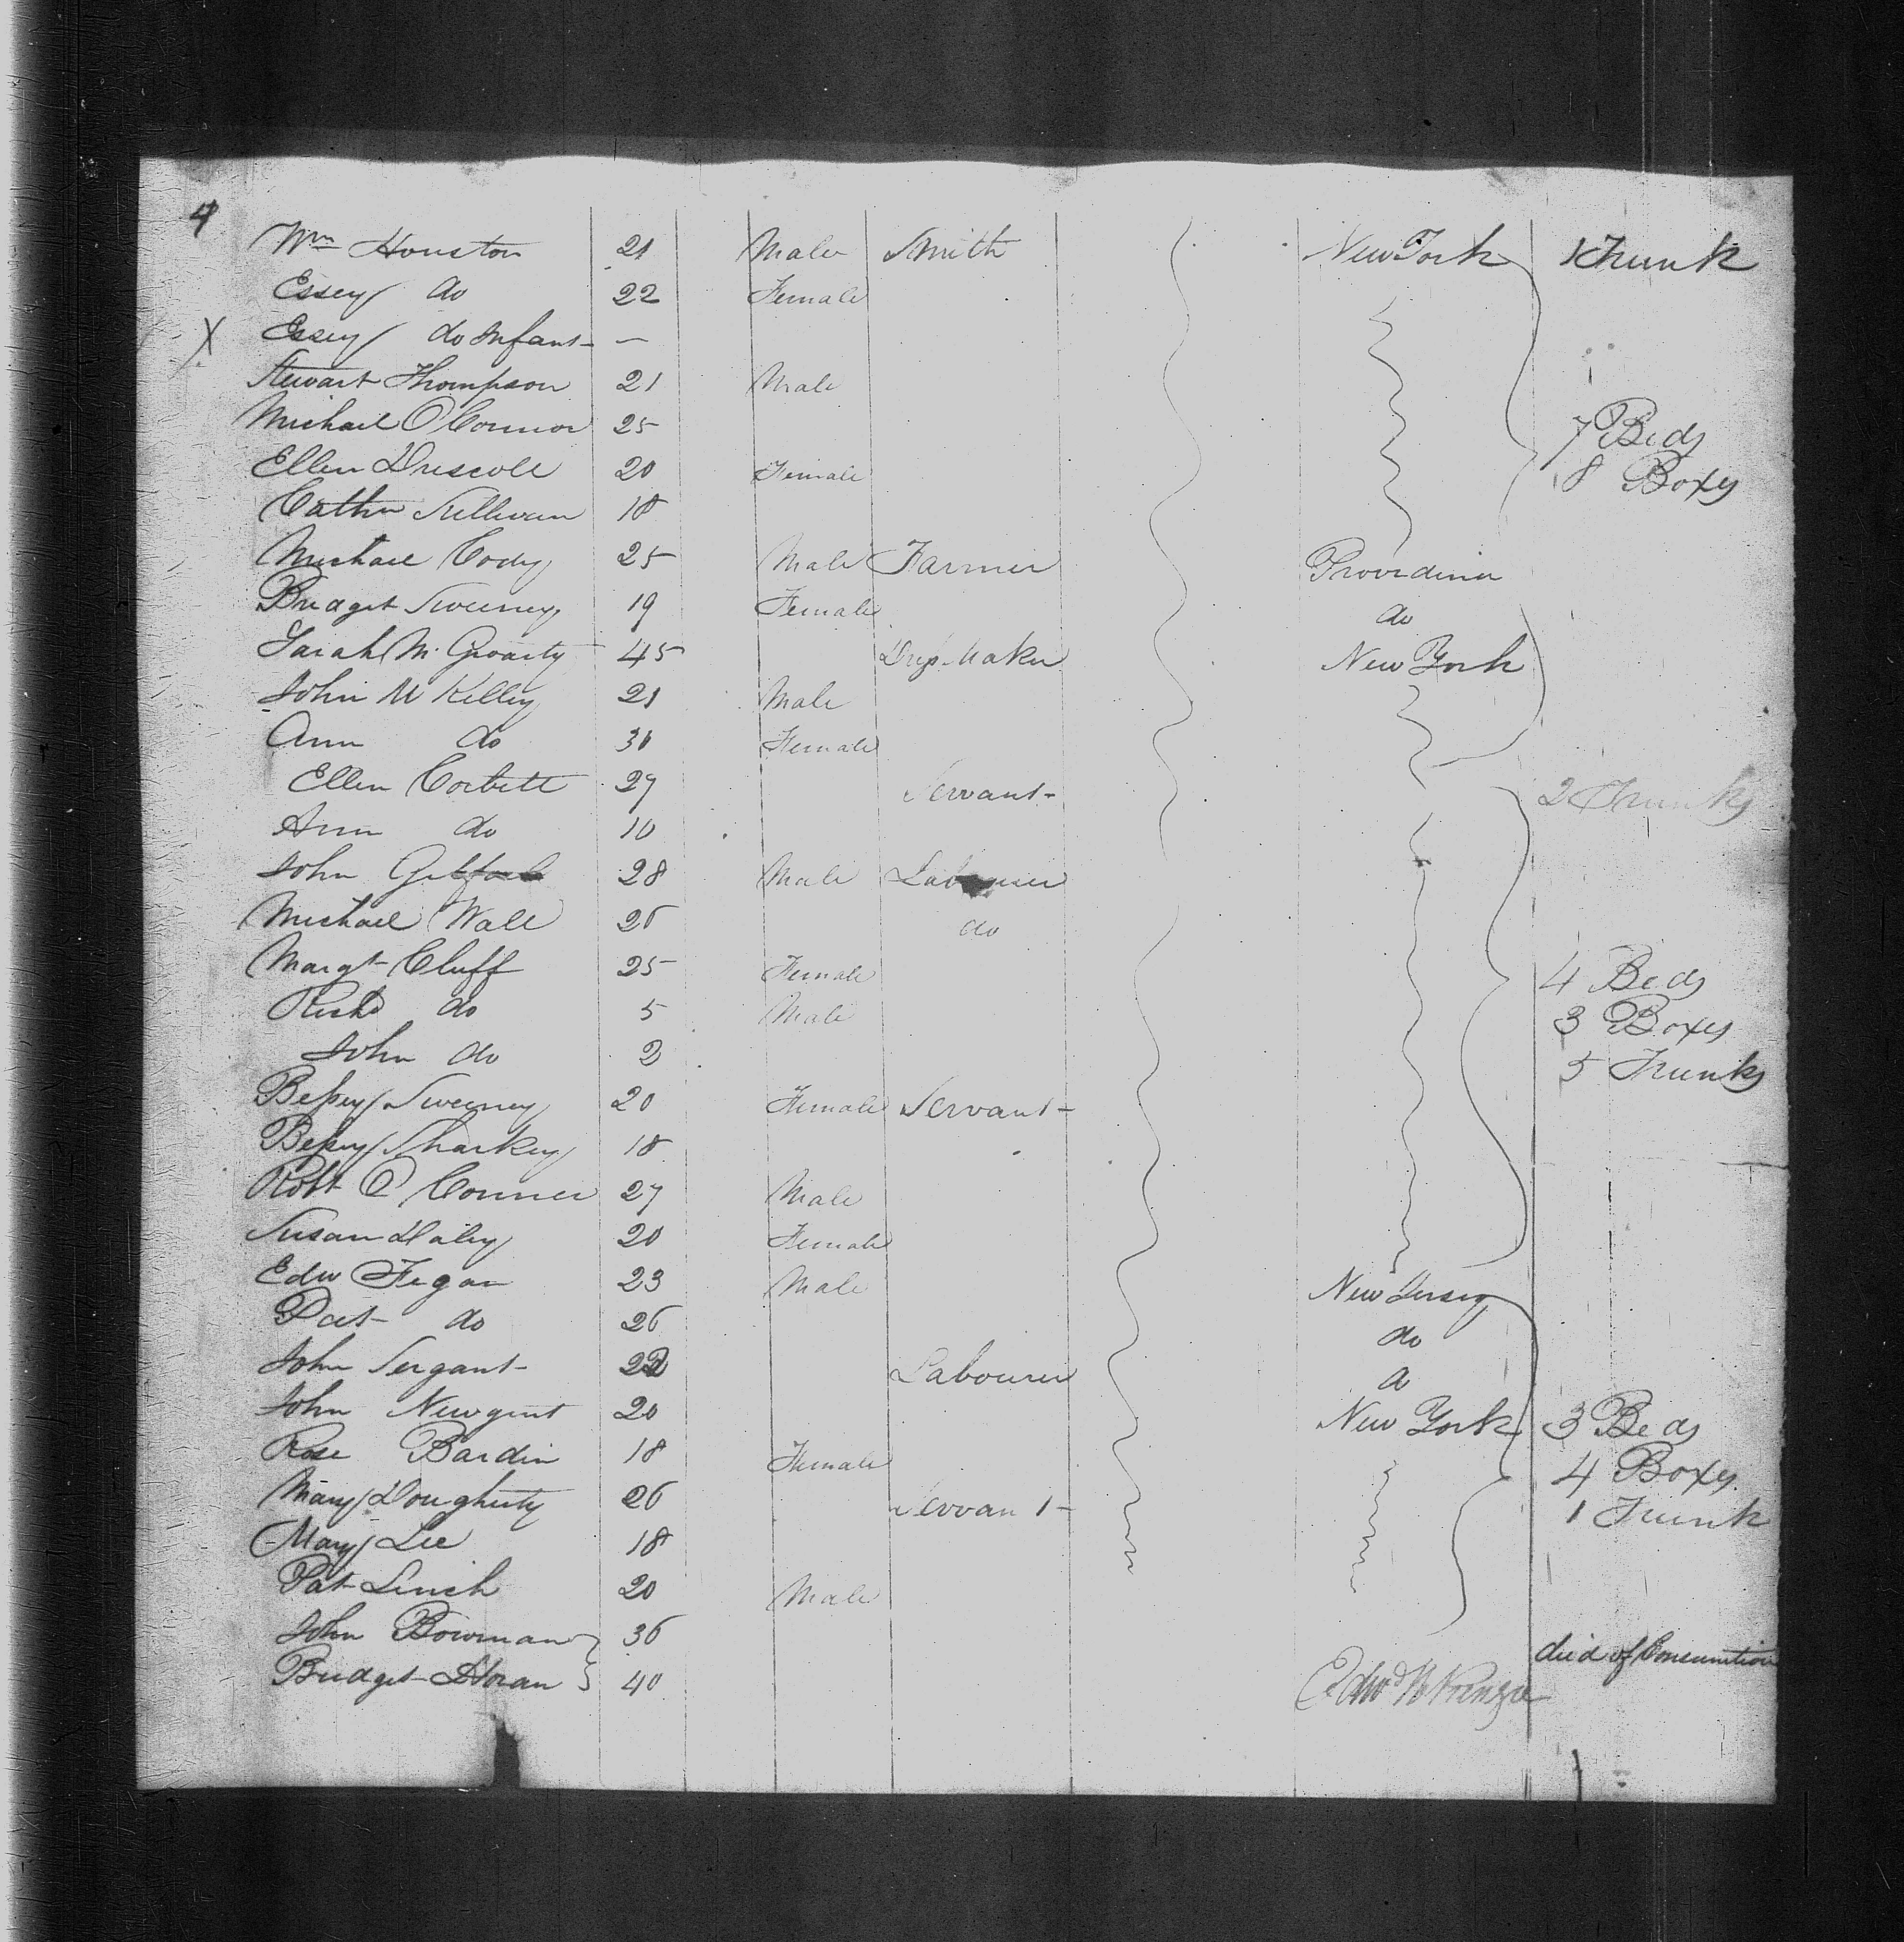 4
Wm Houston 21 Male Smith New York 1 Trunk
Essey do 22 Female
X Essey do Infant —
Stewart Thompson 21 Male
Michael O Connor 25 7 Beds
Ellen Driscoll 20 Female 8 Boxes
Cathn Sullivan 18
Michael Cody 25 Male Farmer Providence
Bridget Sweeney 19 Female do
Sarah Mc Groarty 45 Dress Maker New York
John M Kelley 21 Male
Ann do 30 Female
Ellen Corbett 27 Servant 2 Trunks
Ann do 10
John 28 Male Labourer
Michael Wall 26 do
Margt Cluff 25 Female 4 Beds
Richd do 5 Male 3 Boxes
John do 2 5 Trunks
Bessey Sweeney 20 Female Servant
Bessey Sharkey 18
Robt O Conner 27 Male
Susan Daley 20 Female
Edw Fegan 23 Male New Jersey
Pat do 26 do
John Sergant 22 Labourer do
John Newgent 20 New York 3 Beds
Rose Bardin 18 Female 4 Boxes
Mary Dougherty 26 Servant 1 Trunk
Mary Lee 18
Pat Linch 20 Male
John Bowman 36 died of Consumtion
Bridget Horan 40 Edwd McKenzie